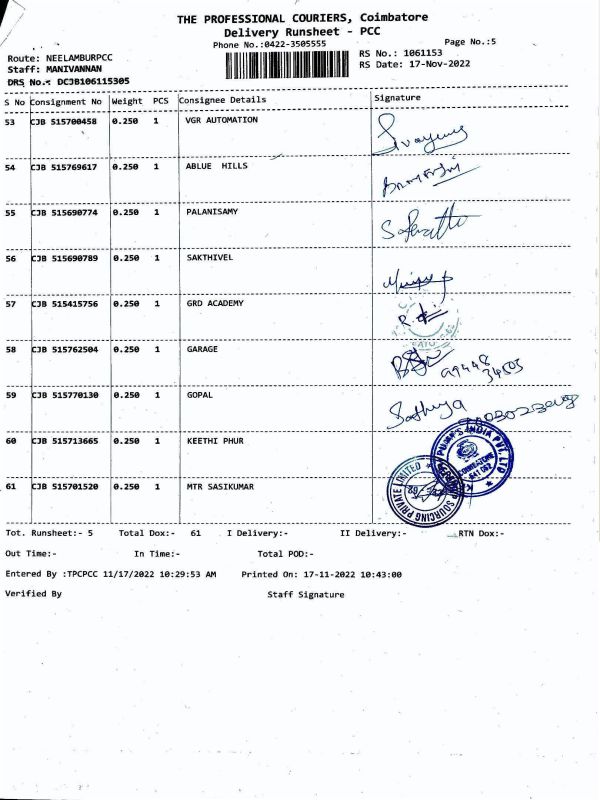 THE PROFESSIONAL COURIERS, Coimbatore
Delivery Runsheet - PCC
Phone No.:0422-3505555
Page No.:5
Route: NEELAMBURPCC
RS No.: 1061153
Staff: MANIVANNAN
RS Date: 17-Nov-2022
DRS No.: DCJB106115305
S No Consignment No Weight PCS Consignee Details Signature
53 CJB 515700458 0.250 1 VGR AUTOMATION
54 CJB 515769617 0.250 1 ABLUE HILLS
55 CJB 515690774 0.250 1 PALANISAMY
56 CJB 515690789 0.250 1 SAKTHIVEL
57 CJB 515415756 0.250 1 GRD ACADEMY
58 CJB 515762504 0.250 1 GARAGE
59 CJB 515770130 0.250 1 GOPAL
Sathya
60 CJB 515713665 0.250 1 KEETHI PHUR
INDIA PVT. LTD
COIMBATORE
61 CJB 515701520 0.250 1 MTR SASIKUMAR
SOURCING PRIVATE LIMITED
Tot. Runsheet:- 5 Total Dox:- 61 I Delivery:- II Delivery:- RTN Dox:-
Out Time:- In Time:- Total POD:-
Entered By :TPCPCC 11/17/2022 10:29:53 AM Printed On: 17-11-2022 10:43:00
Verified By Staff Signature